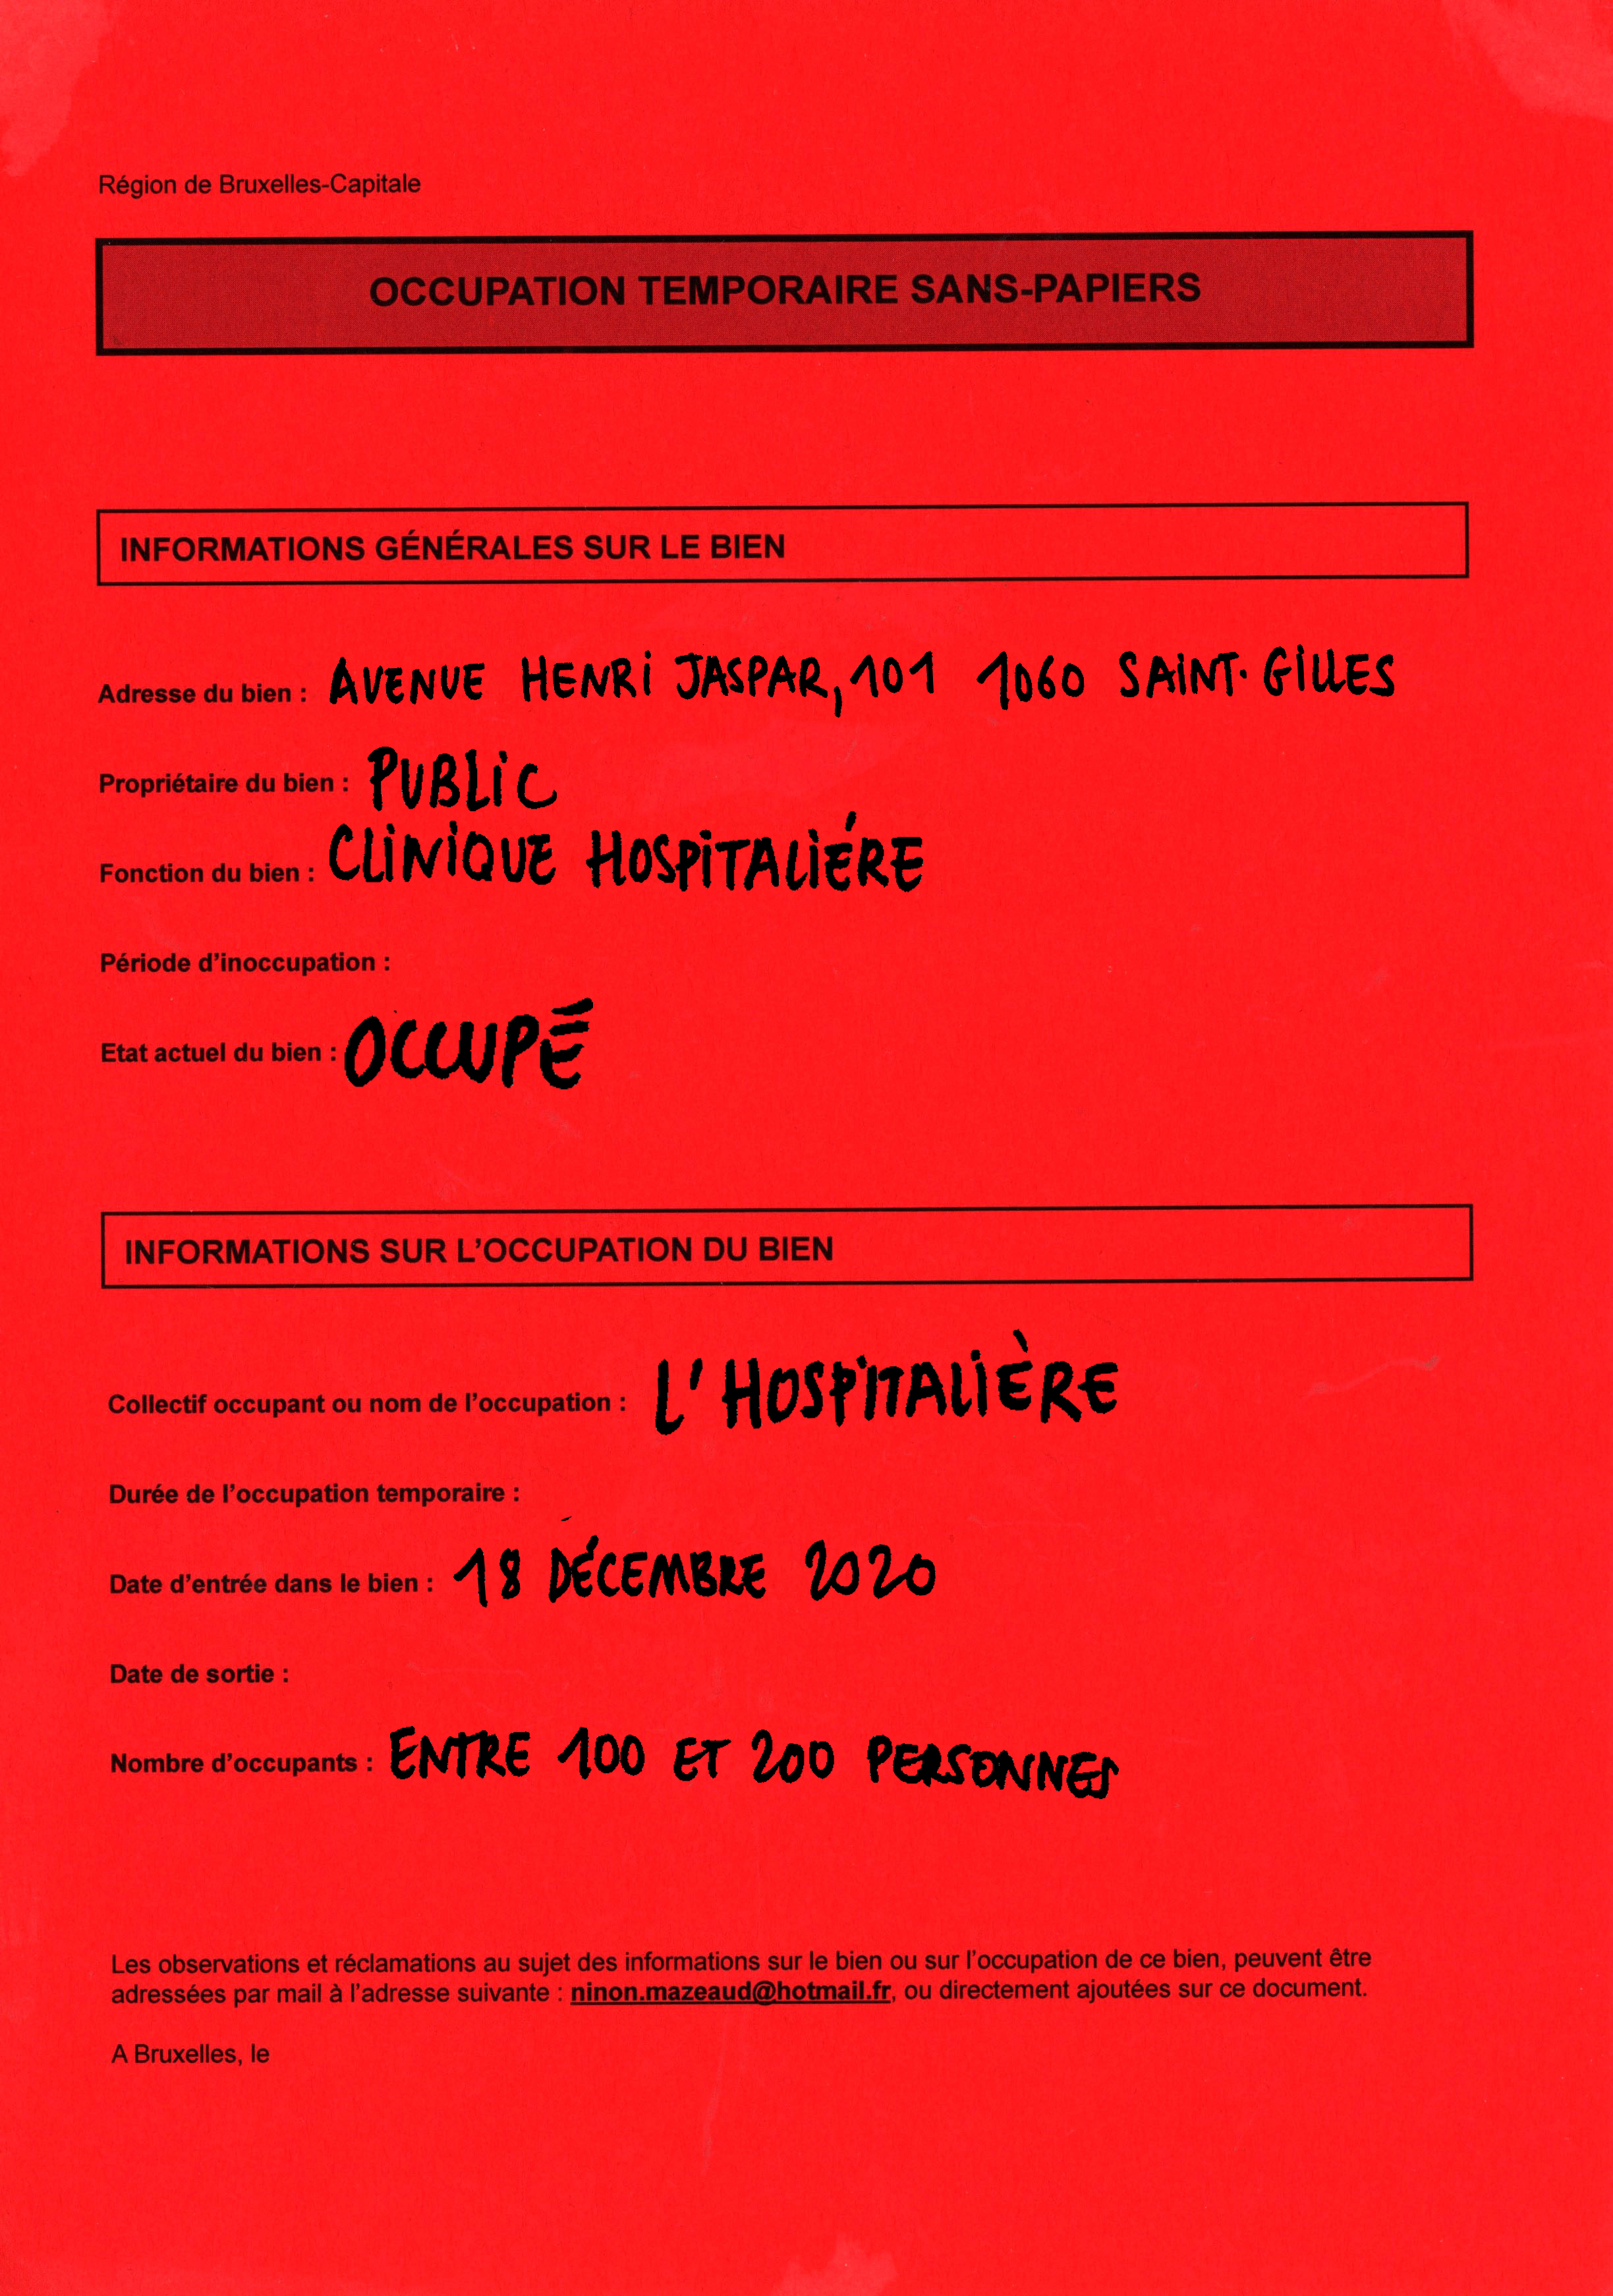 Région de Bruxelles-Capitale
OCCUPATION TEMPORAIRE SANS-PAPIERS
INFORMATIONS GÉNÉRALES SUR LE BIEN
Adresse du bien : AVENUE HENRI JASPAR, 101 1060 SAINT-GILLES
Propriétaire du bien : PUBLIC
Fonction du bien : CLINIQUE HOSPITALIÉRE
Période d'inoccupation :
Etat actuel du bien : OCCUPÉ
INFORMATIONS SUR L'OCCUPATION DU BIEN
Collectif occupant ou nom de l'occupation : L'HOSPITALIÈRE
Durée de l'occupation temporaire :
Date d'entrée dans le bien : 18 DÉCEMBRE 2020
Date de sortie :
Nombre d'occupants : ENTRE 100 ET 200 PERSONNES
Les observations et réclamations au sujet des informations sur le bien ou sur l'occupation de ce bien, peuvent être
adressées par mail à l'adresse suivante : ninon.mazeaud@hotmail.fr, ou directement ajoutées sur ce document.
A Bruxelles, le